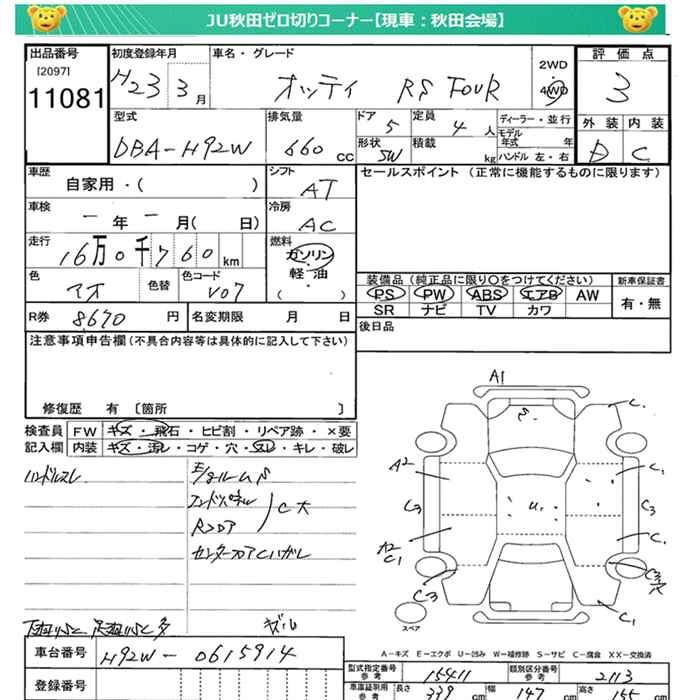 JU秋田ゼロ切りコーナー【現車：秋田会場】
出品番号 初度登録年月 車名・グレード 2WD 4WD 評価点
[2097]
11081 H23 3月 オッティ RS FOUR 3
型式 排気量 ドア 5 定員 4人 ディーラー・並行 外装 内装
DBA-H92W 660cc 形状 SW 積載 kg モデル年式 年 ハンドル 左・右 D C
車歴 自家用・( ) シフト AT セールスポイント (正常に機能するものに限ります)
車検 ー年ー月( 日) 冷房 AC
走行 16万0千760km 燃料 ガソリン・軽油・( )
色 アオ 色替 色コード V07
装備品 (純正品に限り○をつけてください) 新車保証書
PS PW ABS エアB AW 有・無
SR ナビ TV カワ
R券 8670円 名変期限 月 日 後日品
注意事項申告欄(不具合内容等は具体的に記入して下さい)
修復歴 有 〔箇所 〕
検査員 FW キズ・飛石・ヒビ割・リペア跡・×要
記入欄 内装 キズ・汚レ・コゲ・穴・スレ・キレ・破レ
ハンドルスレ
E/gルーム
エンドパネル
Rフロア
C大
センターフロアCハガレ
キズル
A1
C.
A2 C.
C3 U. C3
A2 C1 C.
C3 C3
C1
スペア
A－キズ E－エクボ U－凹み W－補修跡 S－サビ C－腐食 XX－交換済
車台番号 H92W-0615914
登録番号
型式指定番号 参考 15411 類別区分番号 参考 2113
車庫証明用 参考 長さ 339cm 幅 147cm 高さ 155cm